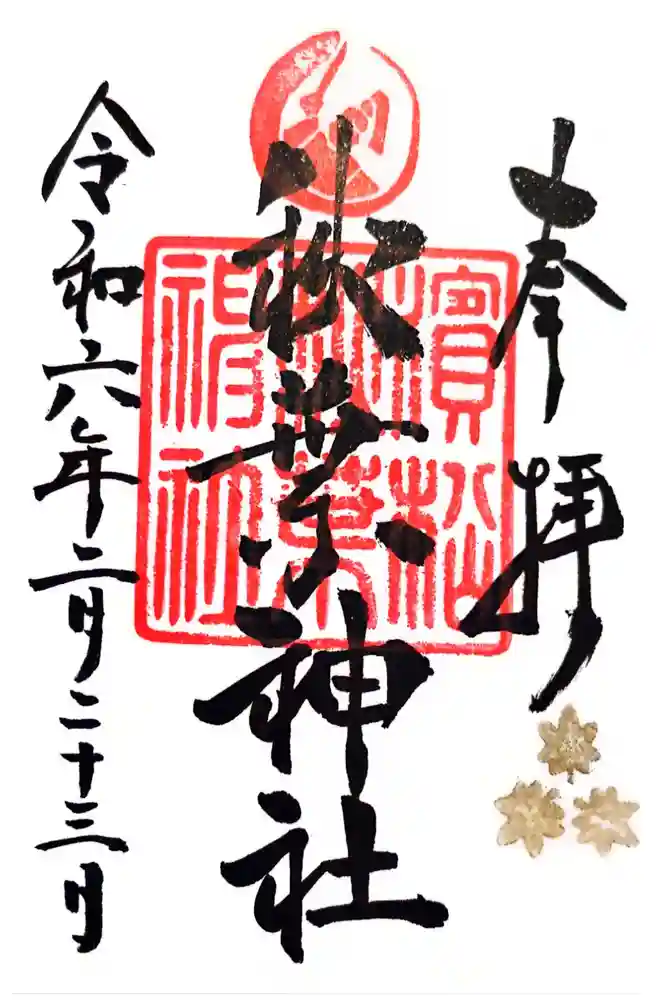 奉拝
秋葉神社
濱松
秋葉
神社
令和六年二月二十三日